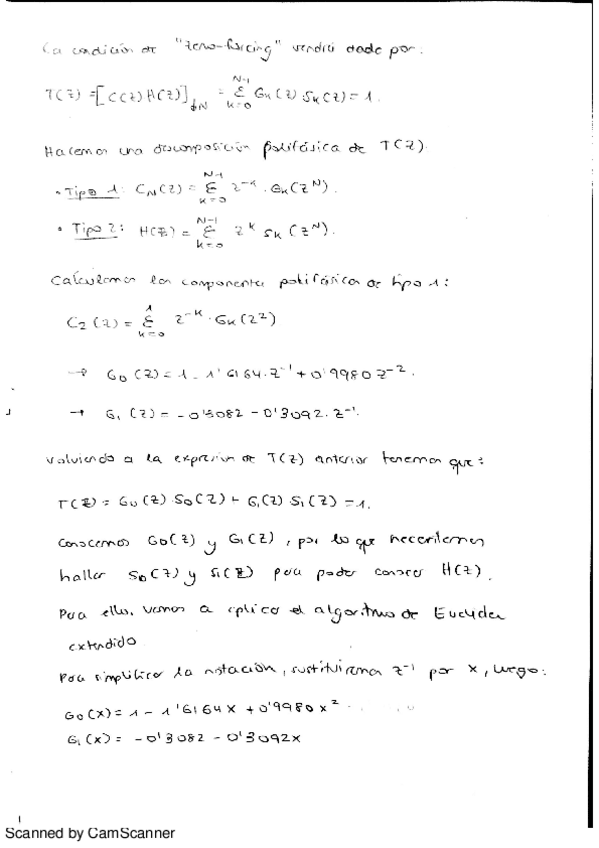 La condición de "zero-forcing" vendrá dada por:
T(z) = [C(z) H(z)]↓N = Σ_{k=0}^{N-1} Gk(z) Sk(z) = 1.
Hacemos una descomposición polifásica de T(z).
• Tipo 1: CN(z) = Σ_{k=0}^{N-1} z^{-k} · Gk(z^N).
• Tipo 2: H(z) = Σ_{k=0}^{N-1} z^k Sk(z^N).
Calculamos las componentes polifásicas de tipo 1:
C2(z) = Σ_{k=0}^{1} z^{-k} · Gk(z^2)
→ G0(z) = 1 - 1'6164·z^{-1} + 0'9980 z^{-2}.
→ G1(z) = -0'3082 - 0'3092·z^{-1}.
Volviendo a la expresión de T(z) anterior tenemos que:
T(z) = G0(z) S0(z) + G1(z) S1(z) = 1.
Conocemos G0(z) y G1(z), por lo que necesitamos
hallar S0(z) y S1(z) para poder conocer H(z).
Para ello, vamos a aplicar el algoritmo de Euclides
extendido
Para simplificar la notación, sustituiremos z^{-1} por x, luego:
G0(x) = 1 - 1'6164x + 0'9980x^2
G1(x) = -0'3082 - 0'3092x
Scanned by CamScanner